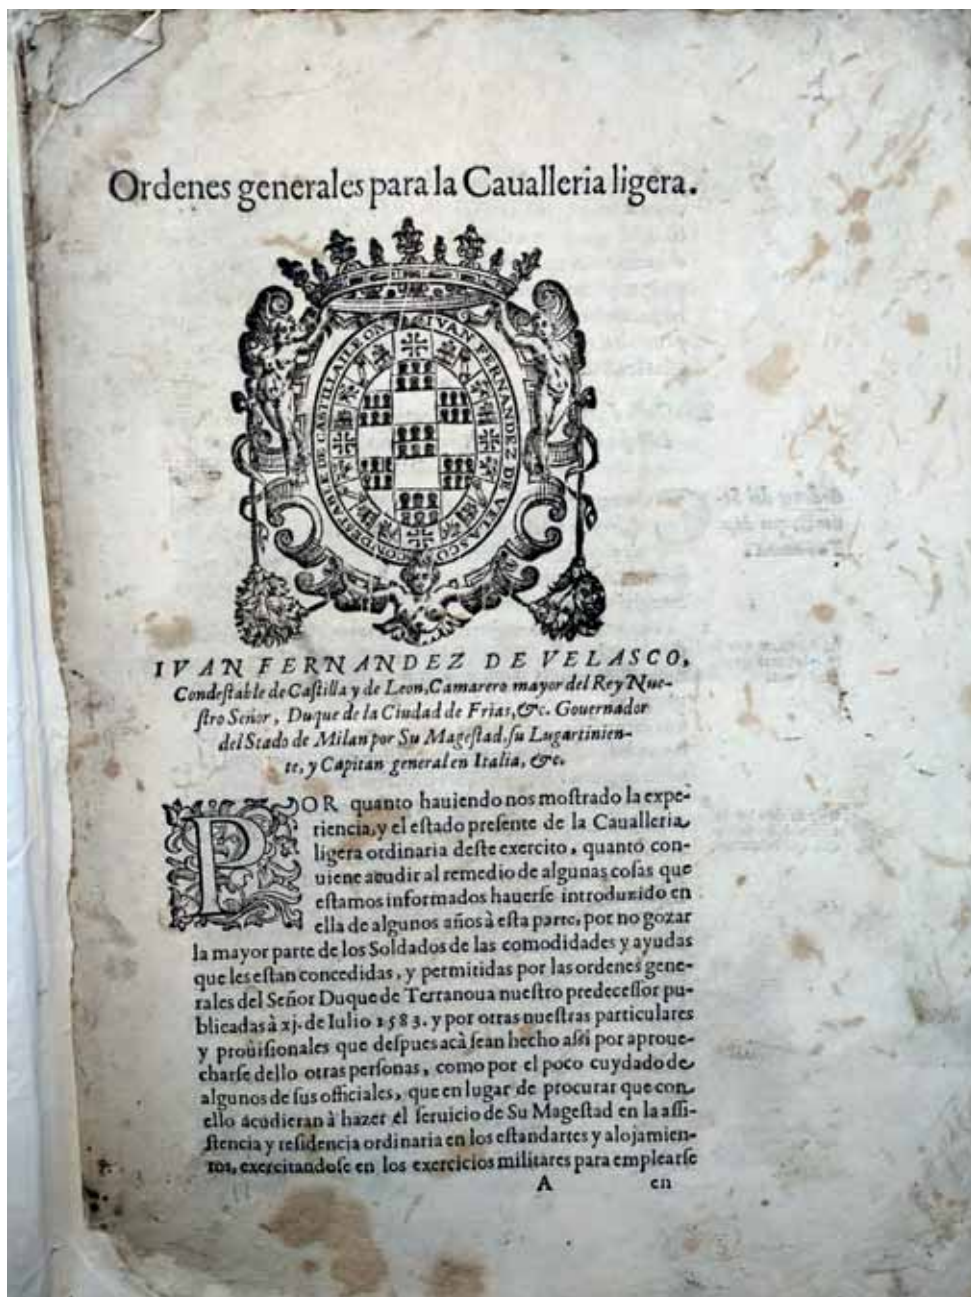 Ordenes generales para la Caualleria ligera.
IVAN FERNANDEZ DE VELASCO CONDESTABLE DE CASTILLA ILEON
IVAN FERNANDEZ DE VELASCO,
Condeſtable de Caſtilla y de Leon, Camarero mayor del Rey Nue-
ſtro Señor, Duque de la Ciudad de Frias, &c. Gouernador
del Stado de Milan por Su Mageſtad, ſu Lugartinien-
te, y Capitan general en Italia, &c.
POR quanto hauiendo nos moſtrado la expe-
riencia, y el eſtado preſente de la Caualleria
ligera ordinaria deſte exercito, quanto con-
uiene acudir al remedio de algunas coſas que
eſtamos informados hauerſe introduzido en
ella de algunos años à eſta parte, por no gozar
la mayor parte de los Soldados de las comodidades y ayudas
que les eſtan concedidas, y permitidas por las ordenes gene-
rales del Señor Duque de Terranoua nueſtro predeceſſor pu-
blicadas à xj. de Iulio 1583. y por otras nueſtras particulares
y prouiſionales que deſpues acà ſean hecho aſſi por aproue-
charſe dello otras perſonas, como por el poco cuydado de
algunos de ſus officiales, que en lugar de procurar que con
ello acudieran à hazer el ſeruicio de Su Mageſtad en la aſſi-
ſtencia y reſidencia ordinaria en los eſtandartes y alojamien-
tos, exercitandoſe en los exercicios militares para emplearſe
A en